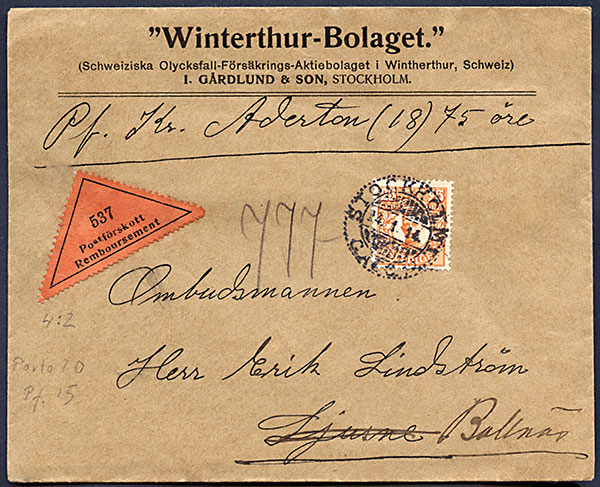 "Winterthur-Bolaget."
(Schweiziska Olycksfall-Försäkrings-Aktiebolaget i Wintherthur, Schweiz)
I. GÅRDLUND & SON, STOCKHOLM.
Pf. Kr. Aderton (18) 75 öre
537
Postförskott
Remboursement
777
STOCKHOLM
1.14
Ombudsmannen
4:2
Herr Erik Lindström
Porto 20
Pf. 15
Ljusne Bollnäs